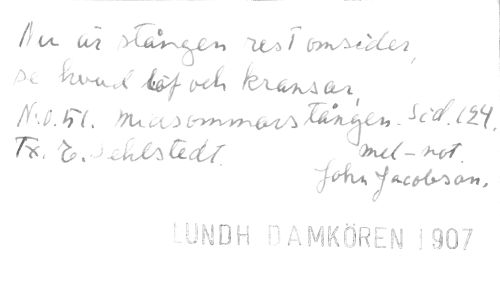 Nu är stången rest omsider,
se hvad löf och kransar,
N.o. 51. Midsommarstången. Sid. 124.
Tx. E. Sehlstedt. mel-not.
John Jacobson.
LUNDH DAMKÖREN 1907